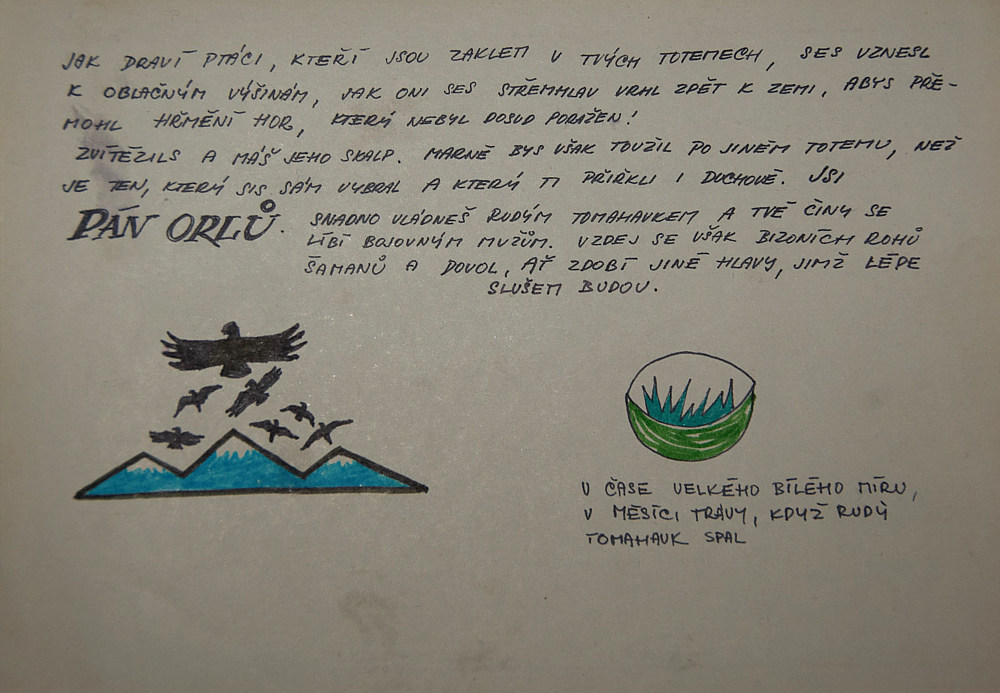 JAK DRAVÍ PTÁCI, KTEŘÍ JSOU ZAKLETI V TVÝCH TOTEMECH, SES VZNESL
K OBLAČNÝM VÝŠINÁM, JAK ONI SES STŘEMHLAV VRHL ZPĚT K ZEMI, ABYS PŘE-
MOHL HŘMĚNÍ HOR, KTERÝ NEBYL DOSUD PORAŽEN!
ZVÍTĚZILS A MÁŠ JEHO SKALP. MARNĚ BYS VŠAK TOUŽIL PO JINÉM TOTEMU, NEŽ
JE TEN, KTERÝ SIS SÁM VYBRAL A KTERÝ TI PŘIŘKLI I DUCHOVÉ. JSI
PÁN ORLŮ. SNADNO VLÁDNEŠ RUDÝM TOMAHAVKEM A TVÉ ČINY SE
LÍBÍ BOJOVNÝM MUŽŮM. VZDEJ SE VŠAK BIZONÍCH ROHŮ
ŠAMANŮ A DOVOL, AŤ ZDOBÍ JINÉ HLAVY, JIMŽ LÉPE
SLUŠET BUDOU.
V ČASE VELKÉHO BÍLÉHO MÍRU,
V MĚSÍCI TRÁVY, KDYŽ RUDÝ
TOMAHAVK SPAL